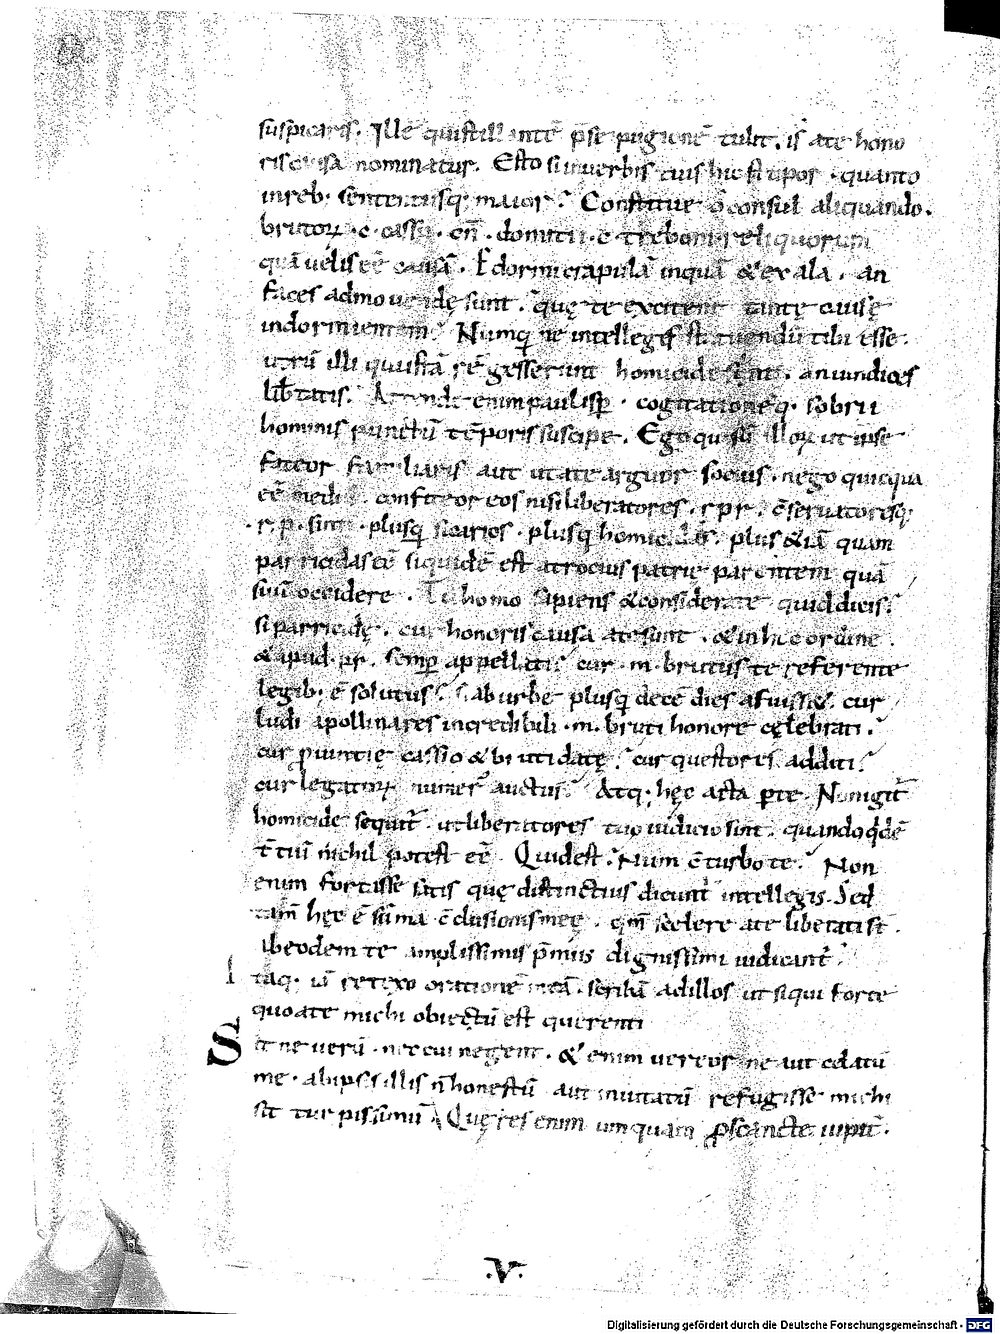 suspicaris. Ille qui stillantē p̄se pugionē tulit. is a te hono
ris causa nominatur. Esto sin uerbis tuis hic stupor . quanto
in reb; sententiisq; maior. Constitue ō consul aliquando.
brutoꝝ . c . cassii . cn̄ . domitii . c . treboni reliquorum
quā uelis eē causā. Edormi crapulā inquā & exala . an
faces admouendę sunt . quę te excitent tantę causę
indormientem. Numq̄ ne intelleges statuendū tibi esse.
utrū illi qui istā rē gesserunt homicide sint . an uindices
lib̄tatis. Attende enim paulisp̄ . cogitationēq; sobrii
hominis punctū tēporis suscipe. Ego qui sū illoꝝ ut ipse
fateor familiaris aut ut a te arguor socius . nego quicquā
eē medii . confiteor eos nisi liberatores . r p r . c̄seruatoresq;
. r . p . sint . plusq̄ sicarios . plusq̄ homicidas . plus &iā quam
parricidas eē siquidē est atrocius patrię parentem quā
suū occidere . Tu homo sapiens & considerate quid dicis.
si parricidę . cur honoris causa a te sunt . & in hoc ordine .
& apud . pr . semp̄ appellati. cur . m . brutus te referente
legib; ē solutus. si ab urbe plusq̄ decē dies afuiss& . cur
ludi apollinares incredibili . m . bruti honore cęlebrati .
cur p̱uintię cassio & bruti datę . cur questores additi .
cur legatoꝝ numer᾽ auctus. Atq; hęc acta p̱ te . Non igit̄
homicide sequit̄ . ut liberatores tuo iudicio sint . quandoq̇dē
t̄tiū nichil potest eē . Quid est . Num c̄turbo te . Non
enim fortisse satis quę distinctius dicunt̄ intellegis. Sed
tam̄ hęc ē sūma c̄clusionis meę . qm̄ scelere a te liberati st̄ .
ab eodem te amplissimis p̄miis dignissimi iudicant̄ .
Itaq; iā retexo orationē meā . scribā ad illos ut si qui forte
quo a te michi obiectū est querent
Sit ne uerū . ne cui negent . & enim uereor ne aut celatū
me . ab ipsis illis n̄ honestū aut inuitatū refugisse michi
sit turpissimū Quę res enim umquam p̱ scancte iupit̄ .
.V.
Digitalisierung gefördert durch die Deutsche Forschungsgemeinschaft - DFG